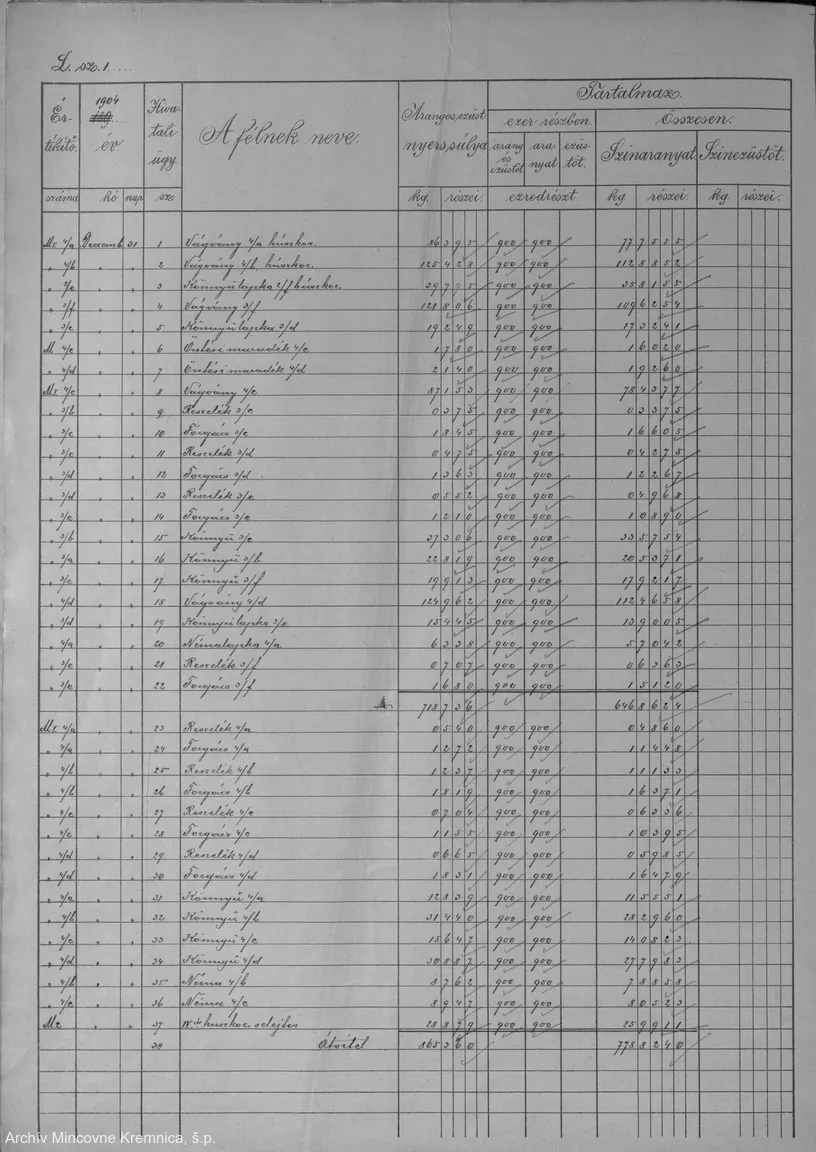 L. sz. 1.
Értékítő száma | 1904 év hó nap | Hivatali ügy sz | A félnek neve. | Aranyos ezüst nyers súlya kg. részei. | Tartalmaz.
ezer részben. | Összesen.
arany és ezüstöt | aranyat | ezüstöt. | Színaranyat | Színezüstöt.
ezredrészt | kg. részei. | kg. részei.
Mz 4/a Decemb. 31 1 Vágvány 4/a húszkor. 86395 900 900 777555
" 4/b " " 2 Vágvány 4/b húszkor. 125428 900 900 1128852
" 2/e " " 3 Könnyü lapka 2/f húszkor. 39795 900 900 358155
" 3/f " " 4 Vágvány 3/f 121806 900 900 1096254
" 3/c " " 5 Könnyü lapka 3/d 19249 900 900 173241
M 4/c " " 6 Öntési maradék 4/c 1780 900 900 16020
" 4/d " " 7 Öntési maradék 4/d 2140 900 900 19260
Mz 4/c " " 8 Vágvány 4/c 87153 900 900 784377
" 3/b " " 9 Reszelék 3/c 0375 900 900 03375
" 3/c " " 10 Forgács 3/c 1845 900 900 16605
" 3/c " " 11 Reszelék 3/d 0475 900 900 04275
" 3/d " " 12 Forgács 3/d 1363 900 900 12267
" 3/d " " 13 Reszelék 3/e 0552 900 900 04968
" 3/e " " 14 Forgács 3/e 1210 900 900 10890
" 3/b " " 15 Könnyü 3/c 37306 900 900 335754
" 3/a " " 16 Könnyü 3/b 22819 900 900 205371
" 3/e " " 17 Könnyü 3/f 19913 900 900 179217
" 4/d " " 18 Vágvány 4/d 124962 900 900 1124658
" 3/d " " 19 Könnyü lapka 3/e 15445 900 900 139005
" 4/a " " 20 Néma lapka 4/a 6338 900 900 57042
" 3/e " " 21 Reszelék 3/f 0707 900 900 06363
" 3/e " " 22 Forgács 3/f 1680 900 900 15120
718736 6468624
Mz 4/a " " 23 Reszelék 4/a 0540 900 900 04860
" 4/a " " 24 Forgács 4/a 1272 900 900 11448
" 4/b " " 25 Reszelék 4/b 1237 900 900 11133
" 4/b " " 26 Forgács 4/b 1819 900 900 16371
" 4/c " " 27 Reszelék 4/c 0704 900 900 06336
" 4/c " " 28 Forgács 4/c 1155 900 900 10395
" 4/d " " 29 Reszelék 4/d 0665 900 900 05985
" 4/d " " 30 Forgács 4/d 1831 900 900 16479
" 4/a " " 31 Könnyü 4/a 12839 900 900 115551
" 4/b " " 32 Könnyü 4/b 31440 900 900 282960
" 4/c " " 33 Könnyü 4/c 15647 900 900 140823
" 4/d " " 34 Könnyü 4/d 30887 900 900 277983
" 4/b " " 35 Néma 4/b 8762 900 900 78858
" 4/c " " 36 Néma 4/c 8947 900 900 80523
Mz " " 37 húszkor. selejtes 28879 900 900 259911
38 Átvitel 865360 7788240
Archív Mincovne Kremnica, š.p.